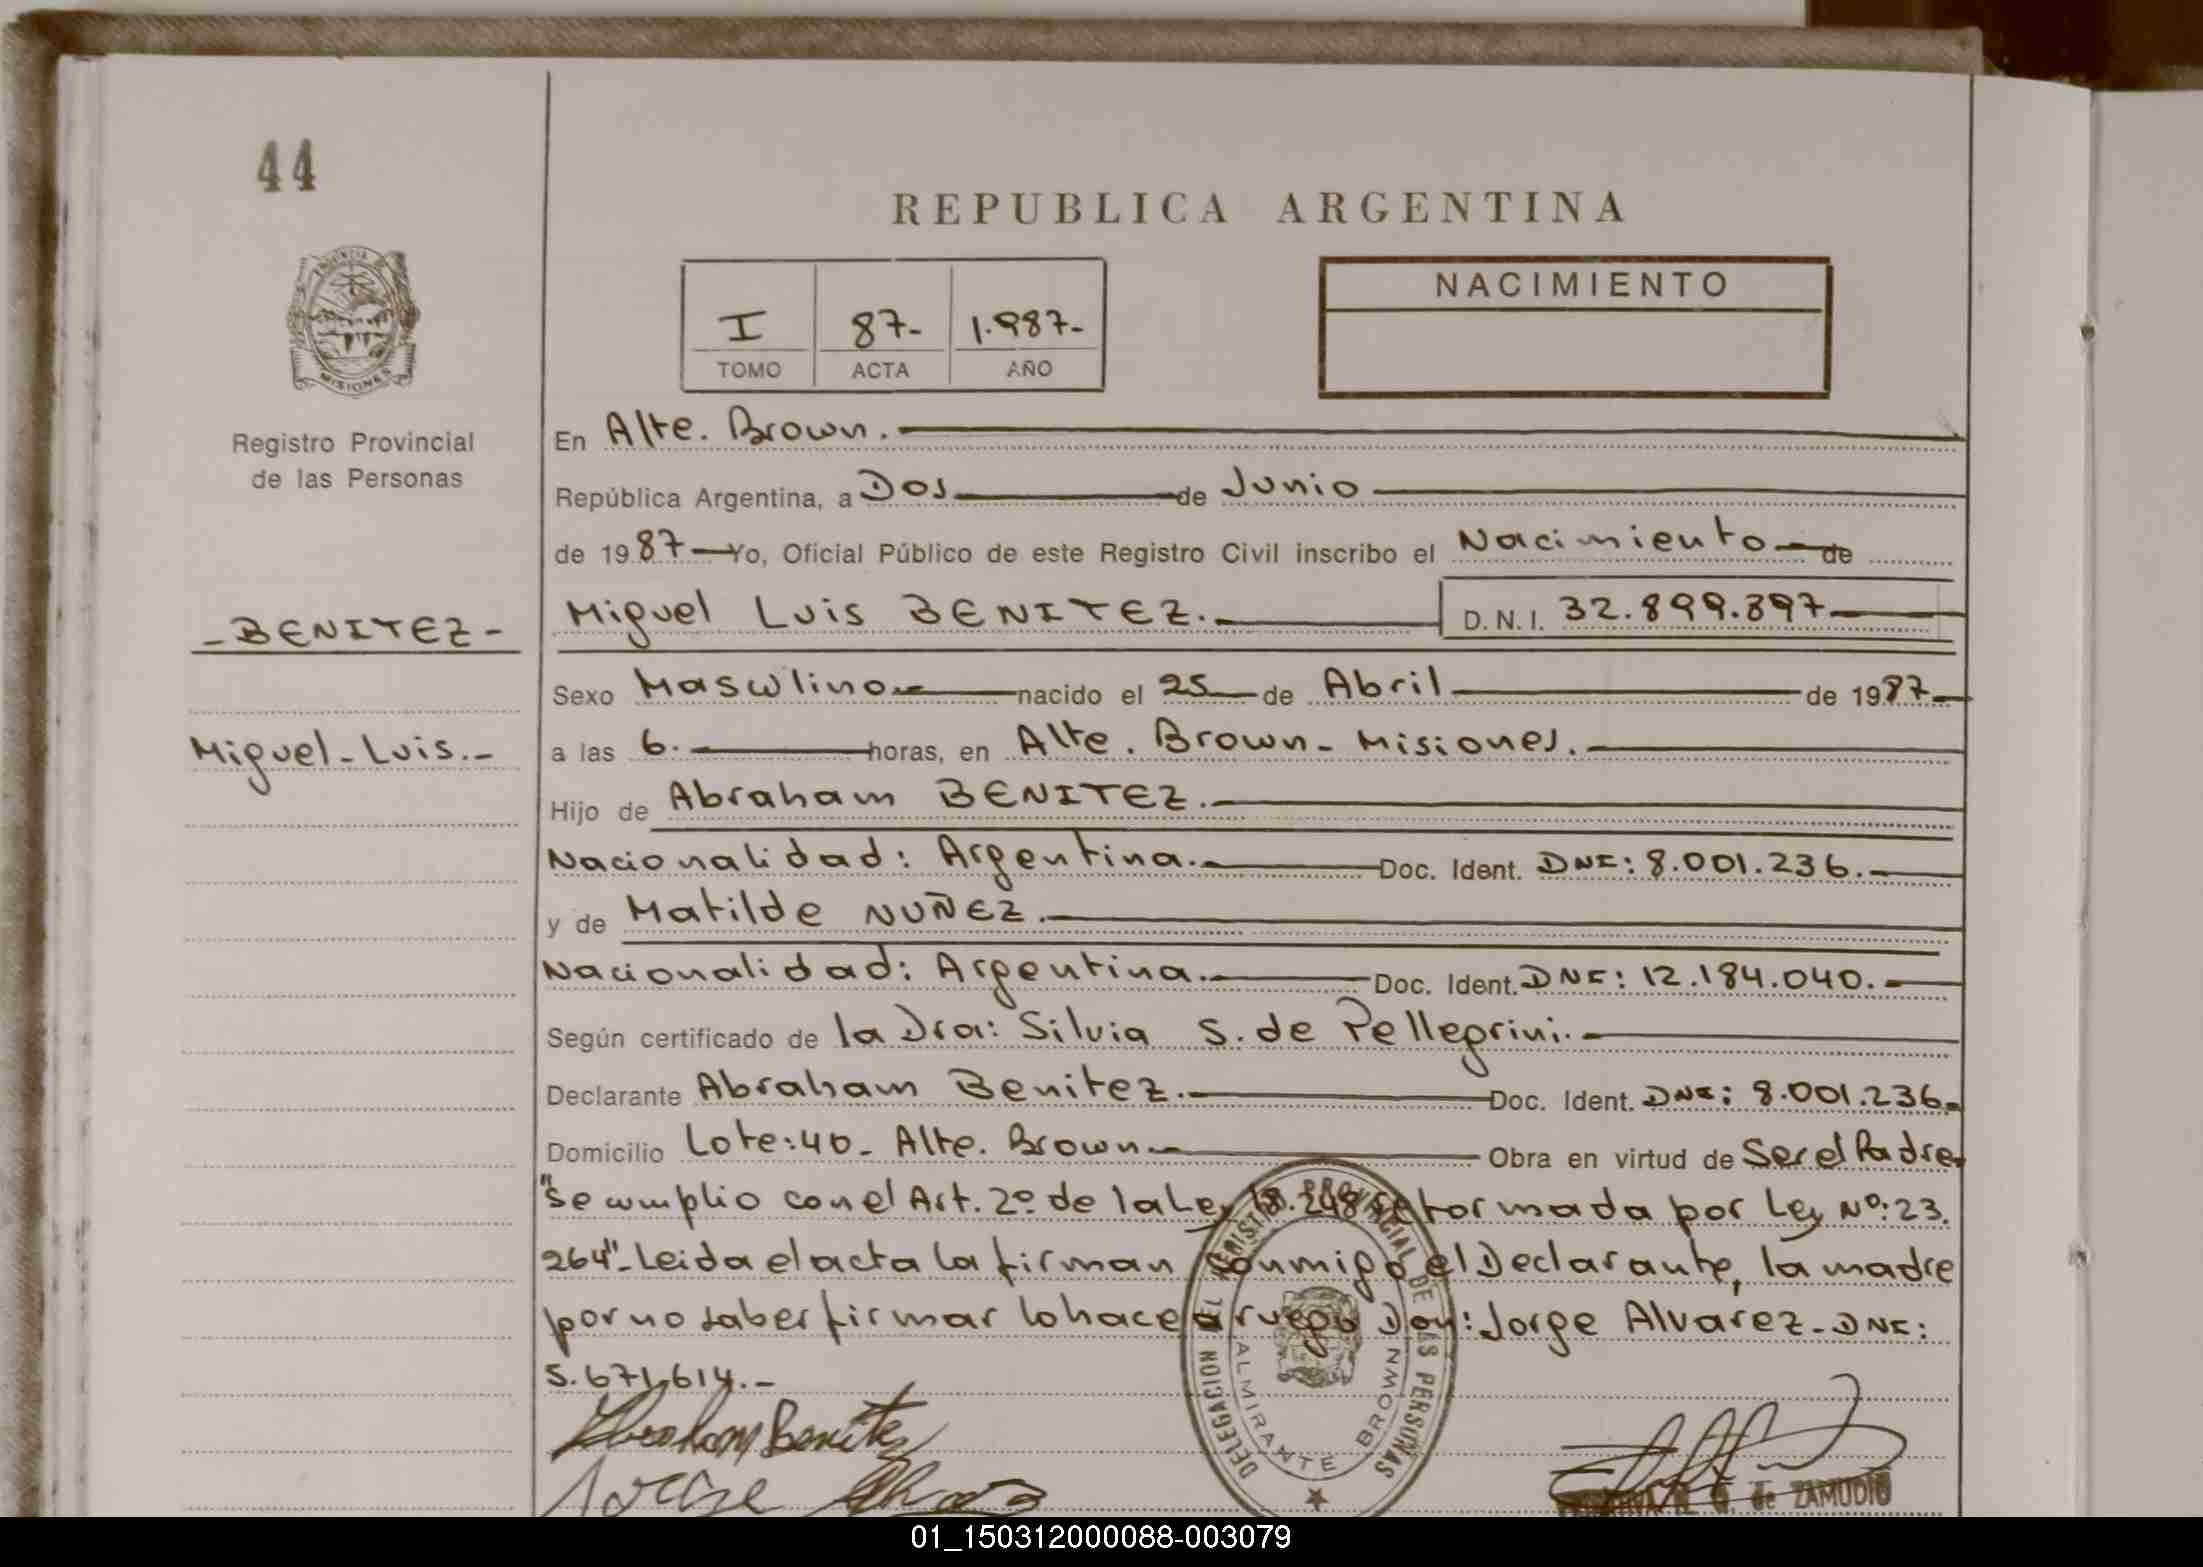 44
REPUBLICA ARGENTINA
PROVINCIA DE
MISIONES
Registro Provincial
de las Personas
NACIMIENTO
I 87- 1.987-
TOMO ACTA AÑO
En Alte. Brown.
República Argentina, a Dos de Junio
de 1987 Yo, Oficial Público de este Registro Civil inscribo el Nacimiento de
-BENITEZ-
Miguel Luis BENITEZ. D.N.I. 32.899.897
Sexo Masculino nacido el 25 de Abril de 1987
Miguel-Luis.-
a las 6. horas, en Alte. Brown- Misiones.
Hijo de Abraham BENITEZ.
Nacionalidad: Argentina. Doc. Ident. DNI: 8.001.236.
y de Matilde NUÑEZ.
Nacionalidad: Argentina. Doc. Ident. DNI: 12.184.040.
Según certificado de la Dra: Silvia S. de Pellegrini.
Declarante Abraham Benitez. Doc. Ident. DNI: 8.001.236.
Domicilio Lote:40- Alte. Brown Obra en virtud de Ser el Padre.
"Se cumplio con el Art. 2º de la Ley 18.248 reformada por Ley Nº: 23.
264"- Leida el acta la firman conmigo el Declarante, la madre
por no saber firmar lo hace a ruego Don: Jorge Alvarez- DNI:
5.671.614.-
DELEGACION DEL REGISTRO PROVINCIAL DE LAS PERSONAS
ALMIRANTE BROWN
Abraham Benitez
Jorge
G. de ZAMUDIO
01_150312000088-003079